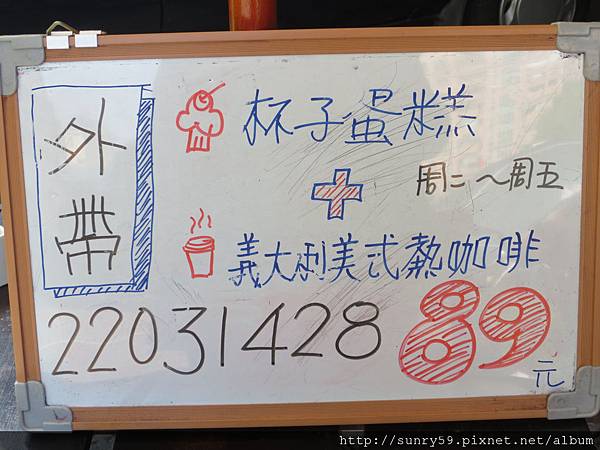 外帶
杯子蛋糕
+
周二～周五
義大利美式熱咖啡
22031428
89元
http://sunry59.pixnet.net/album